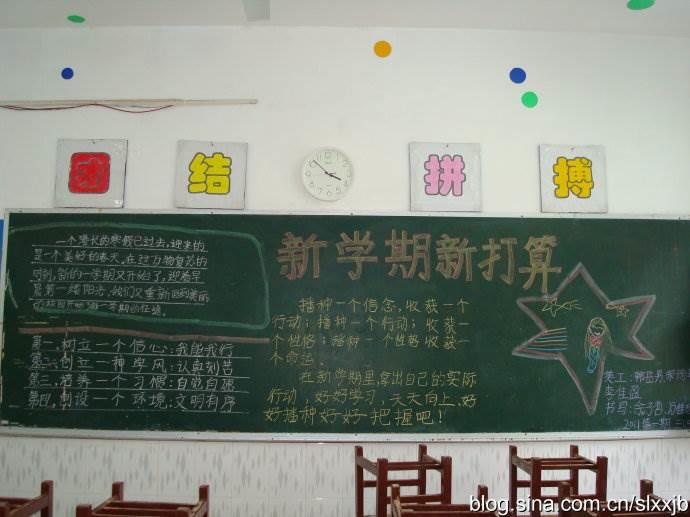 团 结 拼 搏
一个漫长的寒假已过去,迎来的
是一个美好的春天,在这万物复苏的
时刻,新的一学期又开始了,迎着早
晨第一缕阳光,我们又重新回到美丽
第一,树立一个信心:我能我行
第二,创立一种学风:认真刻苦
第三,培养一个习惯:自觉自强
第四,创设一个环境:文明有序
新学期新打算
播种一个信念,收获一个
行动;播种一个行动;收获一
个性格;播种一个性格收获一
个命运
在新学期里,拿出自己的实际
行动,好好学习,天天向上、好
好播种好好把握吧!
美工:
李佳盈
书写:
blog.sina.com.cn/slxxjb